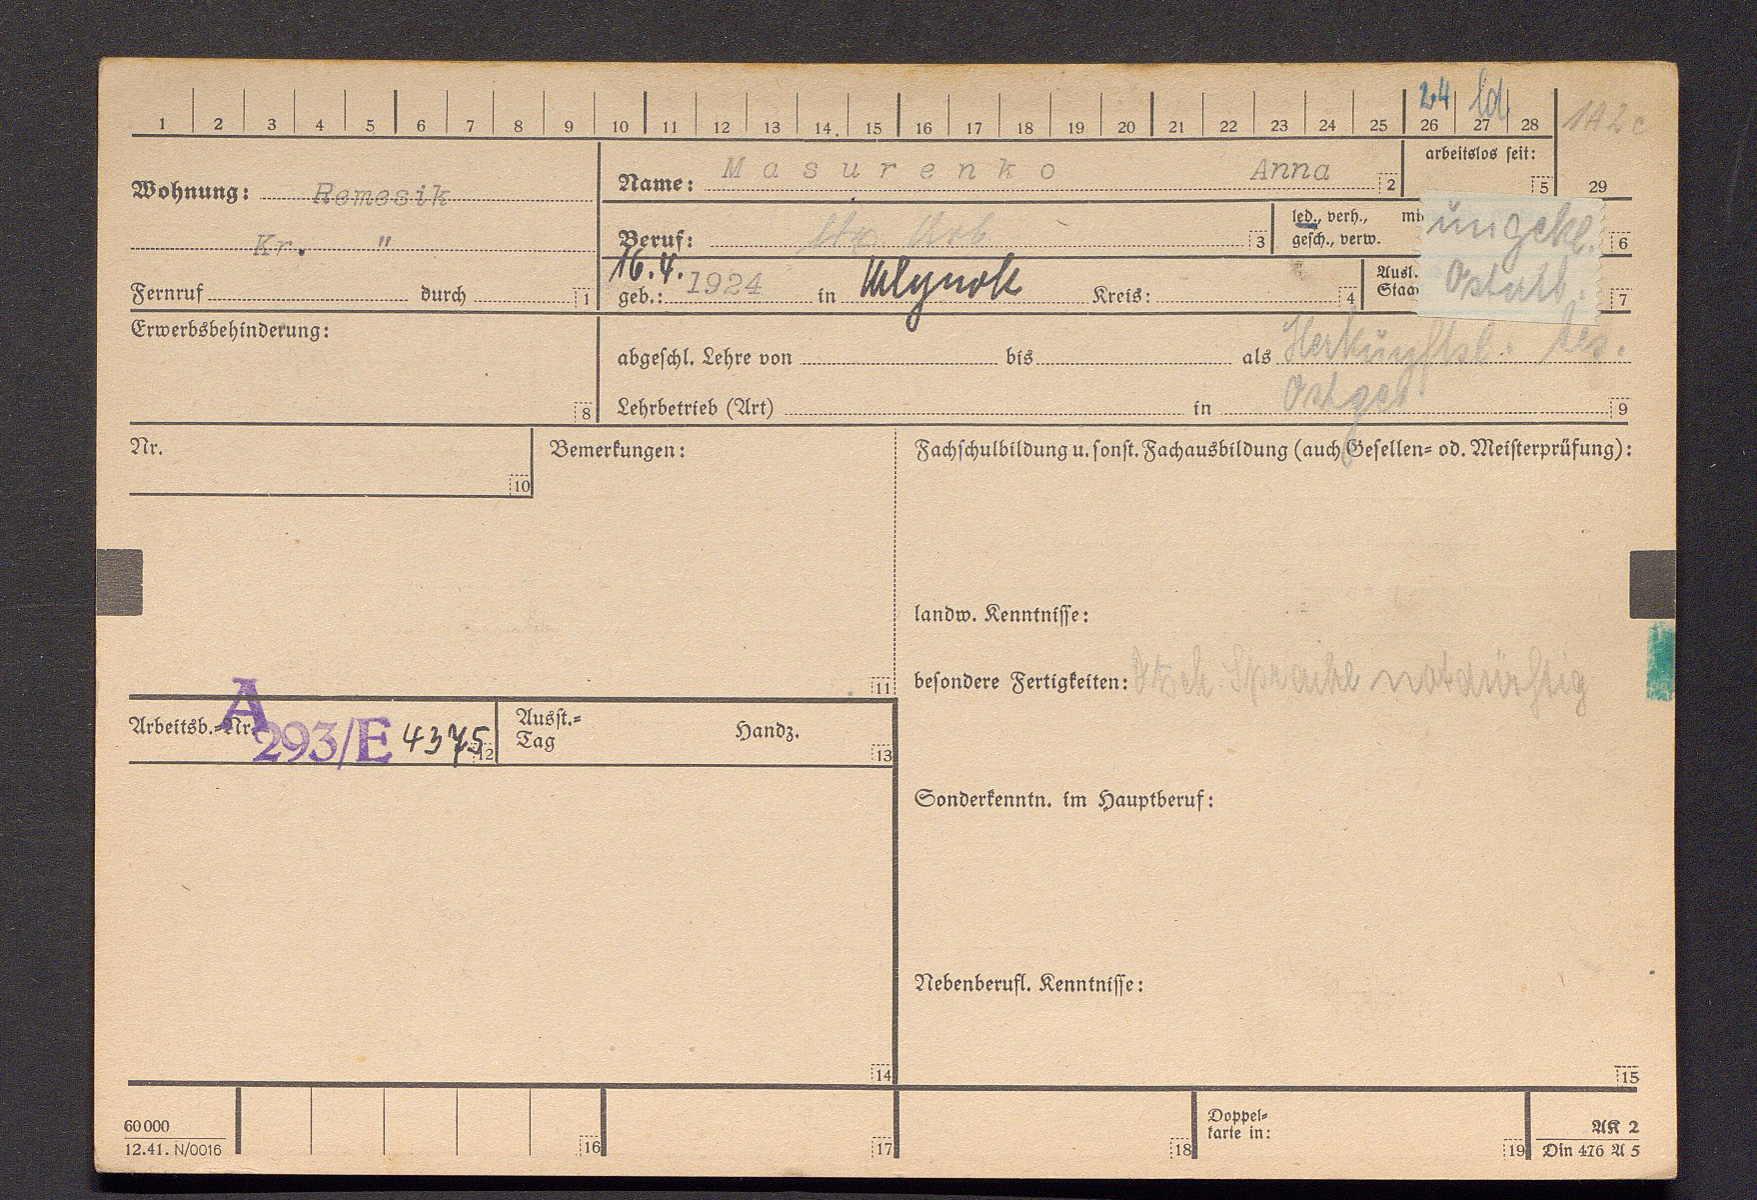 24 ld
1A2c
1 2 3 4 5 6 7 8 9 10 11 12 13 14. 15 16 17 18 19 20 21 22 23 24 25 26 27 28
Wohnung: Remesik
Kr. "
Fernruf durch 1
Name: Masurenko Anna 2
arbeitslos seit: 5
29
Beruf: Arb 3
led., verh.,
gesch., verw.
ungekl. 6
Ostarb. 7
16.4.
geb.: 1924 in Mlynok Kreis: 4
Ausl.
Erwerbsbehinderung: 8
abgeschl. Lehre von bis als Herkunftsl. bes.
Ostgeb
Lehrbetrieb (Art) in 9
Nr. 10
Bemerkungen: 11
Fachschulbildung u. sonst. Fachausbildung (auch Gesellen- od. Meisterprüfung):
landw. Kenntnisse:
besondere Fertigkeiten: Dtsch. Sprache notdürftig
Arbeitsb.-Nr. A
293/E 4375 12
Ausst.-
Tag
Handz. 13
Sonderkenntn. im Hauptberuf:
Nebenberufl. Kenntnisse:
14
15
60000
12.41. N/0016
16
17
18
Doppel-
karte in: 19
AK 2
Din 476 A 5